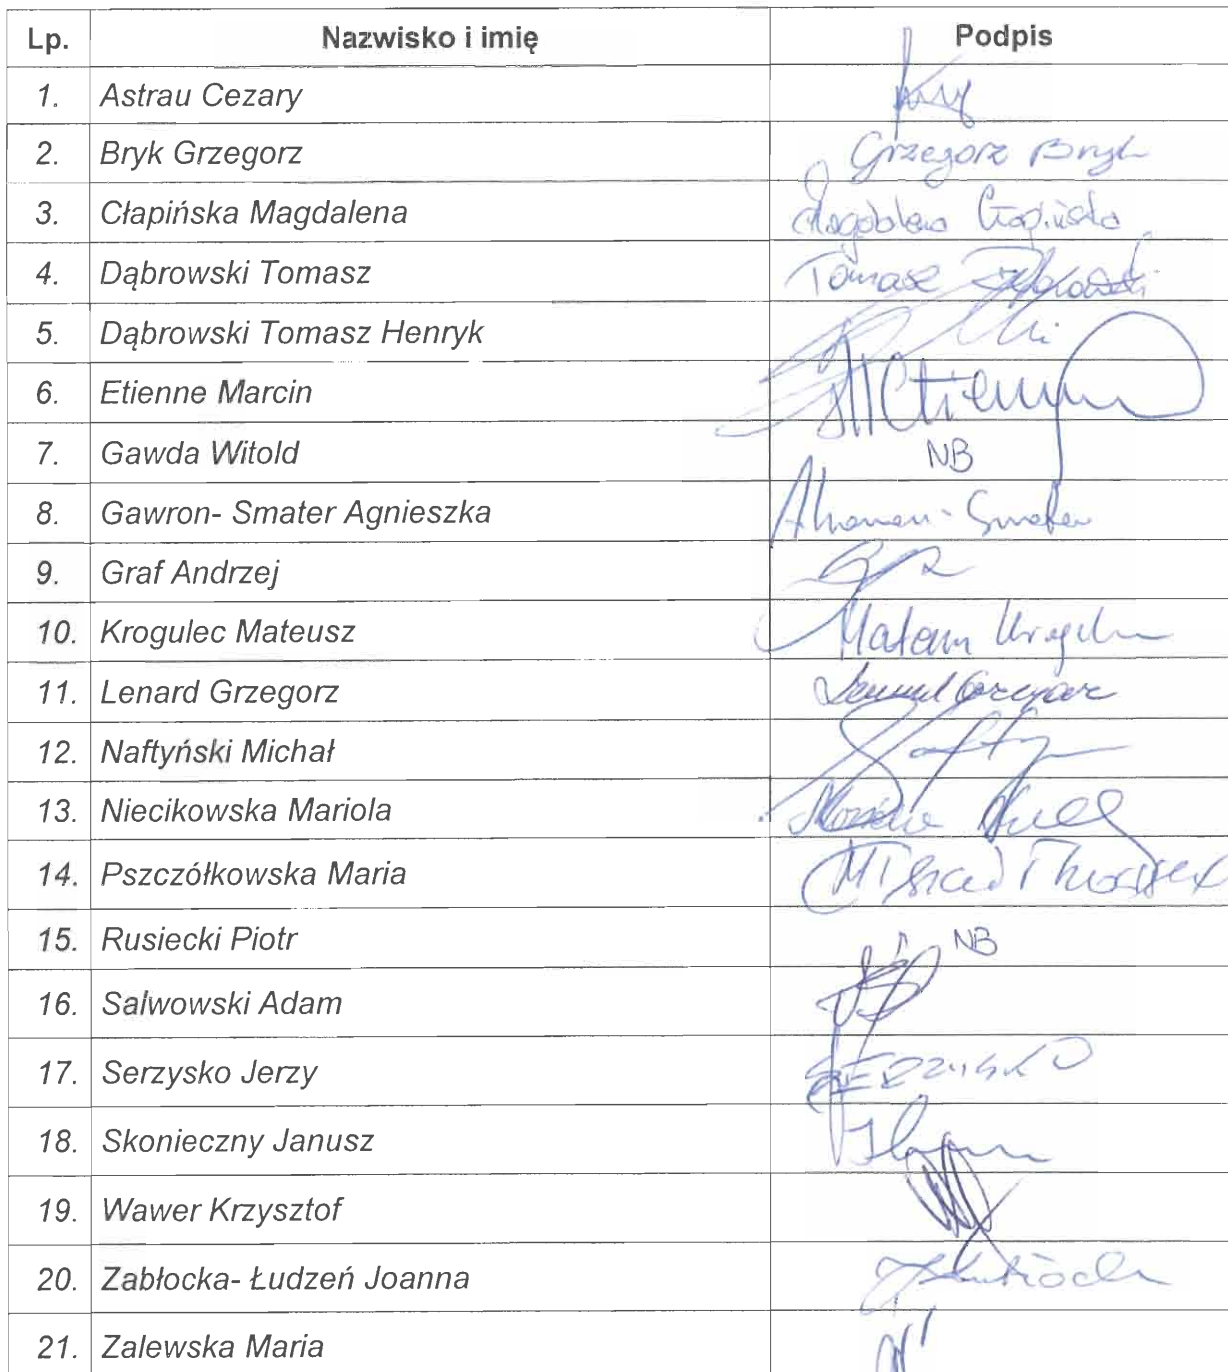 Lp. Nazwisko i imię Podpis
1. Astrau Cezary
2. Bryk Grzegorz Grzegorz Bryk
3. Cłapińska Magdalena Magdalena Cłapińska
4. Dąbrowski Tomasz Tomasz Dąbrowski
5. Dąbrowski Tomasz Henryk
6. Etienne Marcin MEtienne
7. Gawda Witold NB
8. Gawron- Smater Agnieszka Smater
9. Graf Andrzej
10. Krogulec Mateusz Mateusz
11. Lenard Grzegorz Lenard Grzegorz
12. Naftyński Michał
13. Niecikowska Mariola
14. Pszczółkowska Maria
15. Rusiecki Piotr NB
16. Salwowski Adam
17. Serzysko Jerzy SERZYSKO
18. Skonieczny Janusz
19. Wawer Krzysztof
20. Zabłocka- Łudzeń Joanna
21. Zalewska Maria